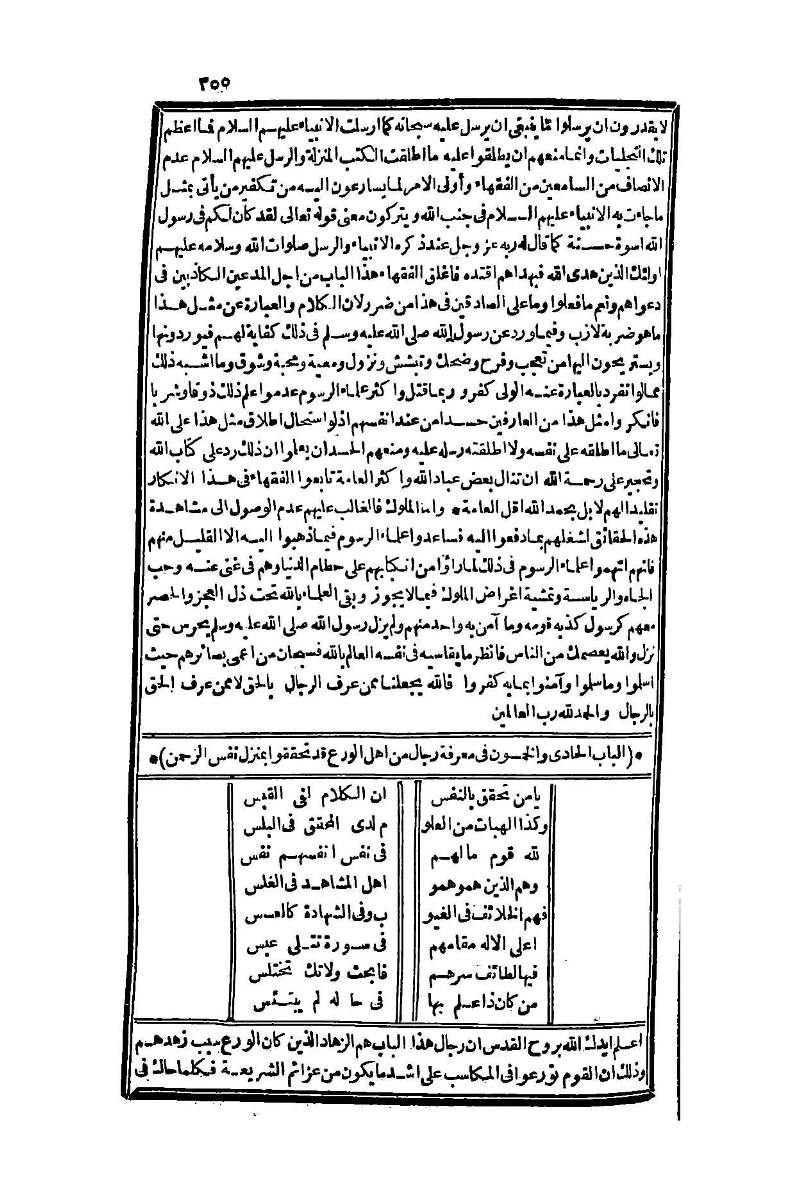 ٣٥٥
لا يقدرون ان يرسلوا ما ينبغي ان يرسل عليه سبحانه كما أرسلت الانبياء عليهم السلام فما أعظم
تلك التجليات وانما منعهم ان يطلقوا عليه ما أطلقت الكتب المنزلة والرسل عليهم السلام عدم
الانصاف من السامعين من الفقهاء وأولى الامر لما يسارعون اليه من تكفير من يأتى بمثل
ما جاءت به الانبياء عليهم السلام فى جنب الله ويتركون معنى قوله تعالى لقد كان لكم فى رسول
الله اسوة حسنة كما قال له ربه عز وجل عند ذكره الانبياء والرسل صلوات الله وسلامه عليهم
اولئك الذين هدى الله فبهداهم اقتده فاغلق الفقهاء هذا الباب من اجل المدعين الكاذبين فى
دعواهم ونعم ما فعلوا وما على الصادقين فى هذا من ضرر لان الكلام والعبارة عن مثل هذا
ما هو ضربة لازب وفيما ورد عن رسول الله صلى الله عليه وسلم فى ذلك كفاية لهم فيوردونها
ويستريحون اليها من تعجب وفرح وضحك وتبشش ونزول ومعية ومحبة وشوق وما اشبه ذلك
مما لو انفرد بالعبارة عنه الولى كفر وربما قتل واكثر علماء الرسوم عدموا علم ذلك ذوقا وشربا
فانكروا مثل هذا من العارفين حسدا من عند انفسهم اذ لو استحال اطلاق مثل هذا على الله
تعالى ما اطلقه على نفسه ولا اطلقته رسله عليه ومنعهم الحسد ان يعلموا ان ذلك رد على كتاب الله
وتحجير على رحمة الله ان تنال بعض عباد الله واكثر العامة تابعوا الفقهاء فى هذا الانكار
تقليدا لهم لا بل بحمد الله اقل العامة * واما الملوك فالغالب عليهم عدم الوصول الى مشاهدة
هذه الحقائق لشغلهم بما دفعوا اليه فساعدوا علماء الرسوم فيما ذهبوا اليه الا القليل منهم
فانهم اتهموا علماء الرسوم فى ذلك لما رأوا من انكبابهم على حطام الدنيا وهم فى غنى عنه وحب
الجاه والرياسة وتمشية اغراض الملوك فيما لا يجوز وبقى العلماء بالله تحت ذل العجز والحصر
معهم كرسول كذبه قومه وما آمن به واحد منهم ولم يزل رسول الله صلى الله عليه وسلم يحرس حتى
نزل والله يعصمك من الناس فانظر ما يقاسيه فى نفسه العالم بالله فسبحان من اعمى بصائرهم حيث
اسلموا وما سلموا وآمنوا بما به كفروا فالله يجعلنا ممن عرف الرجال بالحق لا ممن عرف الحق
بالرجال والحمد لله رب العالمين
* (الباب الحادى والخمسون فى معرفة رجال من اهل الورع قد تحققوا بمنزل نفس الرحمن) *
يا من تحقق بالنفس ان الكلام لفى القبس
وكذا الهبات من العلو م لدى المحقق فى البلس
لله قوم ما لهم فى نفس انفسهم نفس
وهم الذين همو همو اهل المشاهد فى الغلس
فهم الخلائف فى الغيو ب وفى الشهادة كالعسس
اعلى الاله مقامهم فى سورة تتلى عبس
فيها لطائف سرهم فابحث ولاتك تختلس
من كان ذا علم بها فى حاله لم يبتئس
اعلم ايدك الله بروح القدس ان رجال هذا الباب هم الزهاد الذين كان الورع سبب زهدهم
وذلك ان القوم تورعوا فى المكاسب على اشد ما يكون من عزائم الشريعة فكلما حاك فى